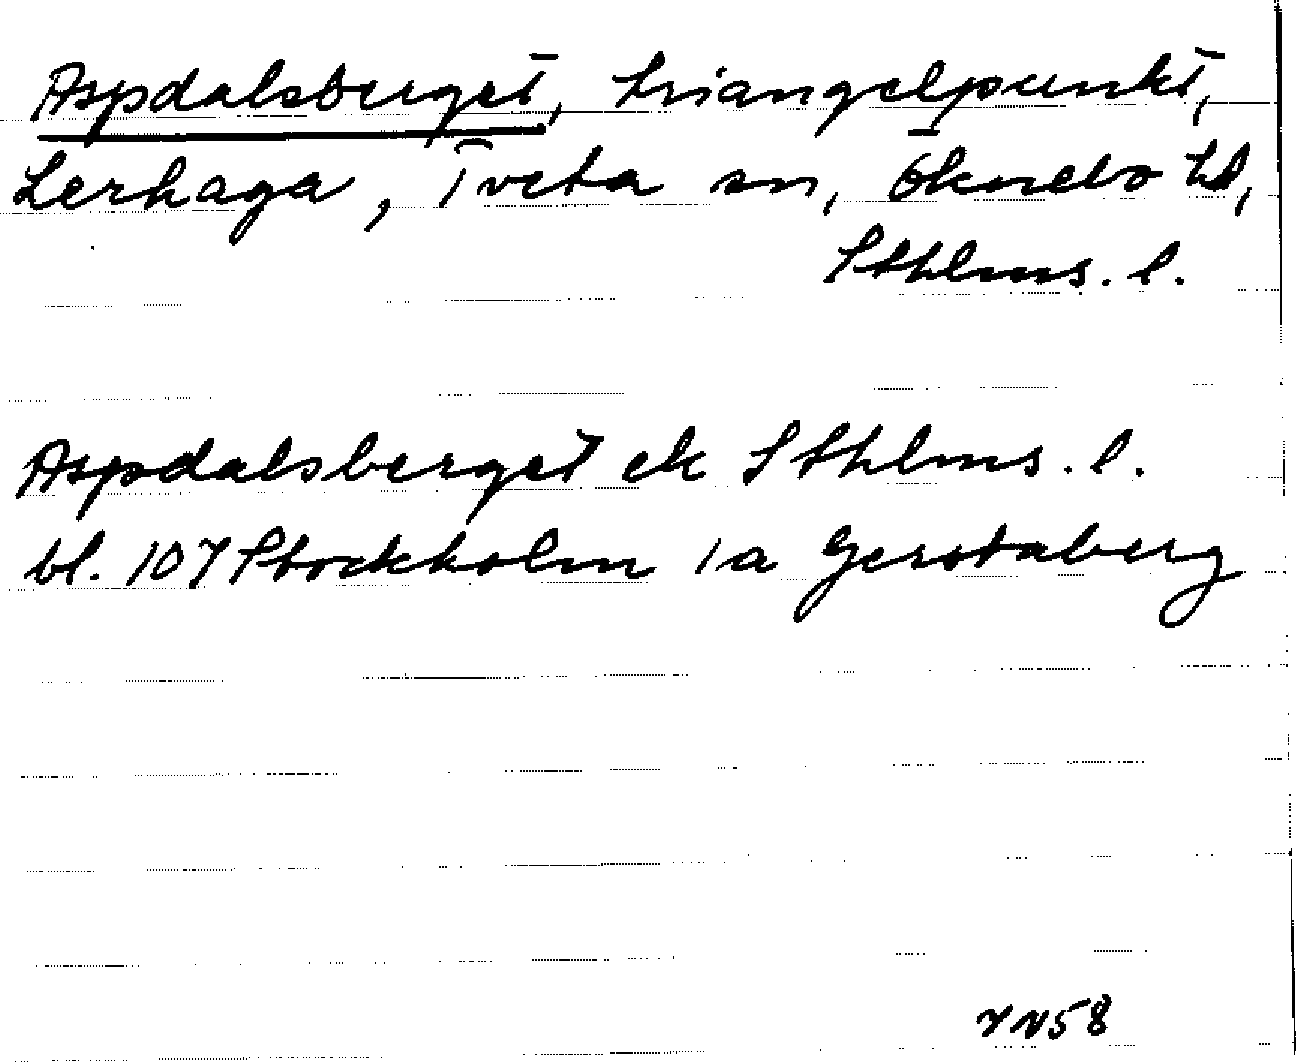 Aspdalsberget, triangelpunkt,
Lerhaga, Tveta sn, Öknebo hd,
Sthlms. l.
Aspdalsberget ek Sthlms. l.
bl. 107 Stockholm 1a Gerstaberg
58